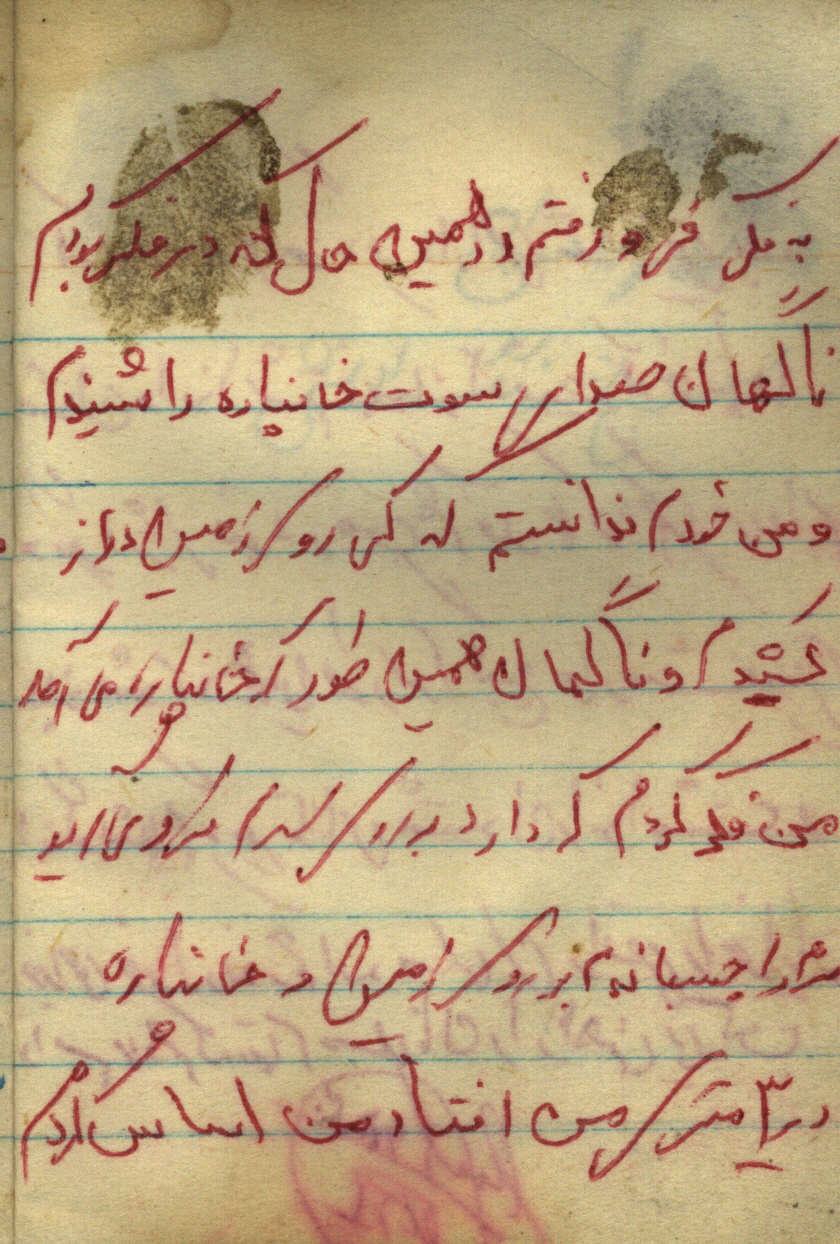 به فکر فرو رفتم در همین حال که در فکر بودم
ناگهان صدای سوت خانپاره را شنیدم
و من خودم ندانستم که کی روی زمین دراز
کشیدم و ناگهان همین طور که خانپاره می آمد
من فکر کردم که دارد به روی سرم فرو می آید
سرم را چسبانده ام بر روی زمین و خانپاره
در ۳ متری من افتاد من احساس کردم